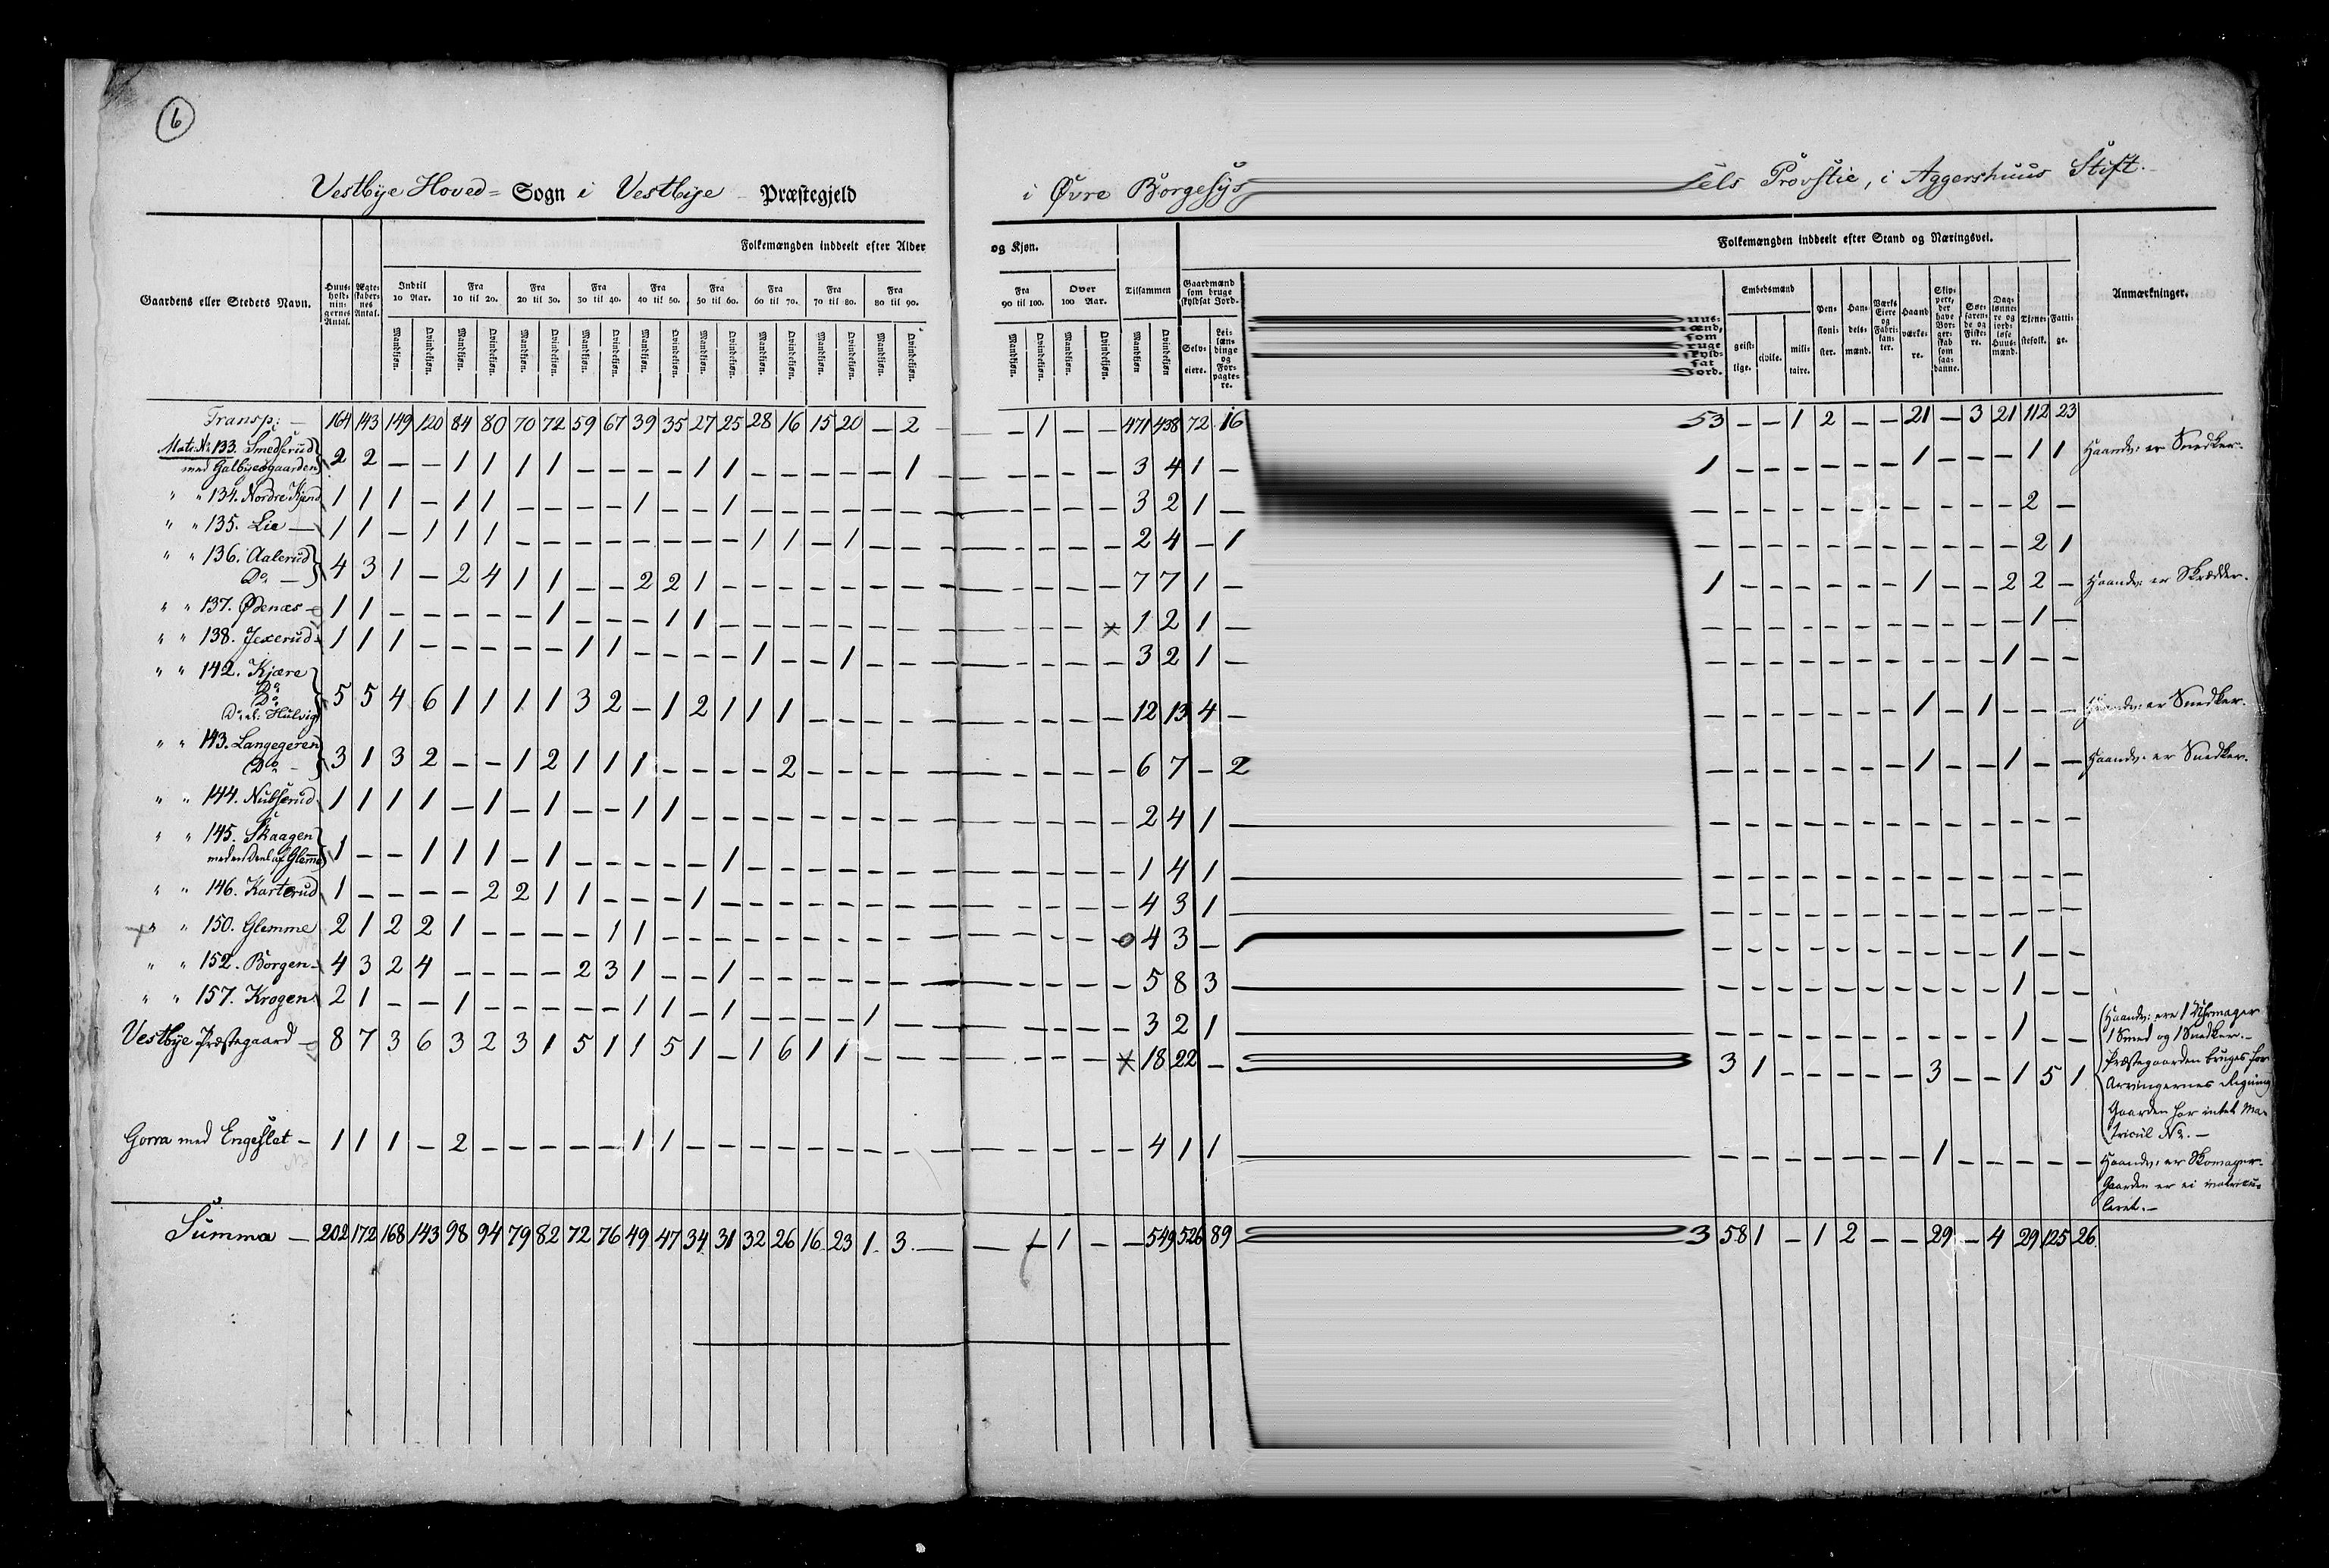 6
Vestbye Hoved= Sogn i Vestbye Præstegjeld i Øvre Borgesys sels Provstie, i Aggershuus Stift.
Folkemængden inddeelt efter Alder og Kjøn. Folkemængden inddeelt efter Stand og Næringsvei.
Gaardens eller Stedets Navn. Huus-holdnin-gernes Antal. Ægte-skaber-nes Antal. Indtil 10 Aar. Fra 10 til 20. Fra 20 til 30. Fra 30 til 40. Fra 40 til 50. Fra 50 til 60. Fra 60 til 70. Fra 70 til 80. Fra 80 til 90. Fra 90 til 100. Over 100 Aar. Tilsammen Gaardmænd som bruge skyldsat Jord. Embedsmænd Anmærkninger.
Mandkjøn. Qvindekjøn. Mandkjøn. Qvindekjøn. Mandkjøn. Qvindekjøn. Mandkjøn. Qvindekjøn. Mandkjøn. Qvindekjøn. Mandkjøn. Qvindekjøn. Mandkjøn. Qvindekjøn. Mandkjøn. Qvindekjøn. Mandkjøn. Qvindekjøn. Mandkjøn. Qvindekjøn. Mandkjøn. Qvindekjøn. Mandkjøn. Qvindekjøn Selv-eiere. Lei-læn-dinge og For-pagte-re. geist-lige. civile. mili-taire. Pen-sioni-ster. Han-dels-mænd. Værks Eiere og Fabri-kan-ter. Haand værke-re. Skip-pere, der have Bor-ger-skab som saa-danne. Søe-faren-de og Fiske-re. Dag-lønne-re og jord-løse Huus-mænd. Tjene-stefolk. Fatti-ge.
Transp: — 164 143 149 120 84 80 70 72 59 67 39 35 27 25 28 16 15 20 — 2 — — 1 — — 471 438 72 16 53 — — 1 2 — — 21 — 3 21 112 23
Matr. No 133. Smedserud
med Galbyesgaarden 2 2 — — 1 1 1 1 — — — — 1 1 — — — — — 1 — — — — 3 4 1 — 1 — — — — — — 1 — — — 1 1 Haandv: er Snedker.
" " 134. Nordre Kjend 1 1 1 — 1 1 — — — — 1 — — 1 — — — — — — — — — — 3 2 1 — — — — — — — — — — — — 2 —
" " 135. Lie — 1 1 — 1 1 1 — — — — — — — — 1 1 — 1 — — — — — — 2 4 — 1 — — — — — — — — — — — 2 1
" " 136. Aalerud
Do — 4 3 1 — 2 4 1 1 — — 2 2 1 — — — — — — — — — — — 7 7 1 — 1 — — — — — — 1 — — 2 2 — Haandv: er Skrædder.
" " 137. Ødenæs — 1 1 — — — — — 1 — — — 1 1 — — — — — — — — — — × 1 2 1 — — — — — — — — — — — — 1 —
" " 138. Jexerud 1 1 1 — — — — — 1 1 — — — — 1 — — 1 — — — — — — 3 2 1 — — — — — — — — — — — 1 — —
" " 142. Kjære
Do
Do
Do al: Hulvig 5 5 4 6 1 1 1 1 3 2 — 1 2 1 1 1 — — — — — — — — 12 13 4 — — — — — — — — 1 — 1 — — — Haandv: er Snedker.
" " 143. Langegeren
Do — 3 1 3 2 — — 1 2 1 1 1 — — — — 2 — — — — — — — — 6 7 — 2 — — — — — — — 1 — — 1 — — Haandv: er Snedker.
" " 144. Nubserud 1 1 1 1 — 1 — 1 — — 1 1 — — — — — — — — — — — — 2 4 1 — — — — — — — — — — — — — —
" " 145. Skaagen
med en Deel af Glemme 1 — — 1 1 1 — 1 — — — — — 1 — — — — — — — — — — 1 4 1 — — — — — — — — — — — — — —
" " 146. Karterud 1 — — — — 2 2 1 1 — — — 1 — — — — — — — — — — — 4 3 1 — — — — — — — — — — — — — —
× " 150. Glemme 2 1 2 2 1 — — — — 1 1 — — — — — — — — — — — — o 4 3 — — — — — — — — — — — 1 — —
" " 152. Borgen — 4 3 2 4 — — — — 2 3 1 — — 1 — — — — — — — — — — 5 8 3 — — — — — — — — — — — 1 — —
" " 157. Krogen 2 1 — — 1 — — — — — 1 1 — 1 — — — — 1 — — — — — 3 2 1 — — — — — — — — — — — 1 — —
Vestbye Præstegaard — 8 7 3 6 3 2 3 1 5 1 1 5 1 — 1 6 1 1 — — — — — × 18 22 — 3 1 — — — — — 3 — — 1 5 1
Haandv: ere 1 Uhrmager
1 Smed og 1 Snedker. —
Præstegaarden bruges for
Arvingernes Regning
Gaarden har intet Ma-
tricul No. —
Gorra med Engeslet — 1 1 1 — 2 — — — — — 1 1 — — — — — — — — — — — — 4 1 1 — — — — — — — 1 — — — — —
Haandv: er Skomager.
Gaarden er ei matricu-
leret. —
Summa — 202 172 168 143 98 94 79 82 72 76 49 47 34 31 32 26 16 23 1 3 — — 1 — — 549 526 89 3 58 1 — 1 2 — — 29 — 4 29 125 26